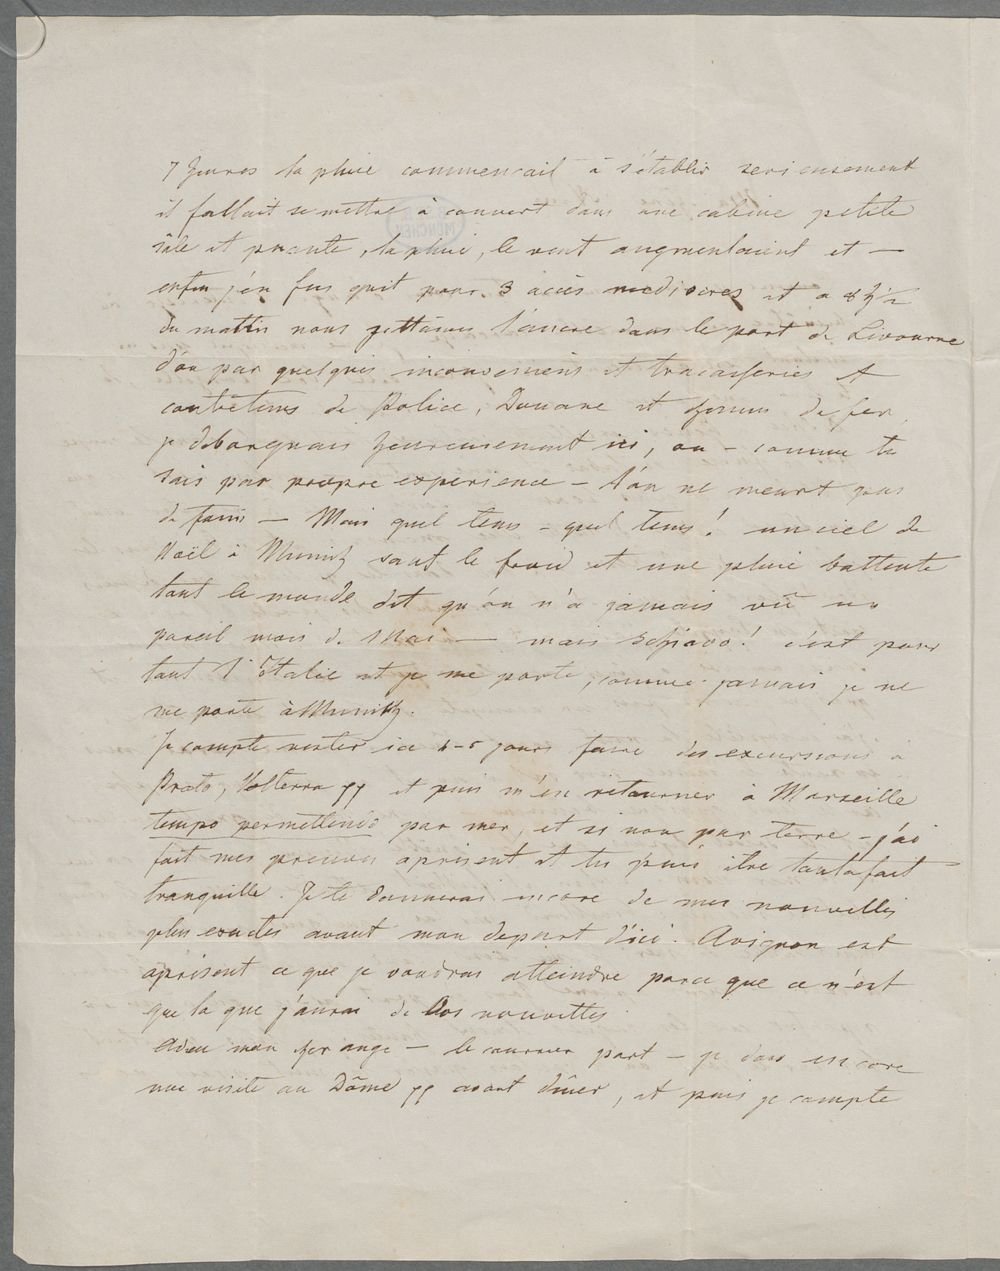 7 heures la pluie commencait à s'établir serieusement
il fallait se mettre à couvert dans une cabine petite
sâle et puante, la pluie, le vent augmentaient et —
enfin j'en fus quit pour 3 accès mediocres et a 8 h ½
du matin nous jettâmes l'ancre dans le port de Livourne
d'où par quelques inconveniens et tracasseries et
de Police, Douane et chemin de fer
je debarquais heureusement ici, ou – comme tu
sais par propre experience – l'on ne meurt pas
de faim — Mais quel tems – quel tems! un ciel de
Noël à Munich sauf le froid et une pluie battente
tout le monde dit qu'on n'a jamais vû un
pareil mois de Mai — mais schiavo! c'est pour
tant l'Italie et je me porte, comme jamais je ne
me porte à Munich.
Je compte rester ici 4-5 jours faire des excursions à
Prato, Volterra pp et puis m'en retourner à Marseille
tempo permettendo par mer, et si non par terre – j'ai
fait mes preuves aprisent et tu puis être toutafait
tranquille. Je te donnerai encore de mes nouvelles
plus exactes avant mon depart d'ici. Avignon est
aprisent ce que je voudrais atteindre parce que ce n'est
que la que j'aurai de Vos nouvelles
Adieu mon cher ange – le courrier part – je dois encore
une visite au Dôme pp avant dîner, et puis je compte
MÜNCHEN